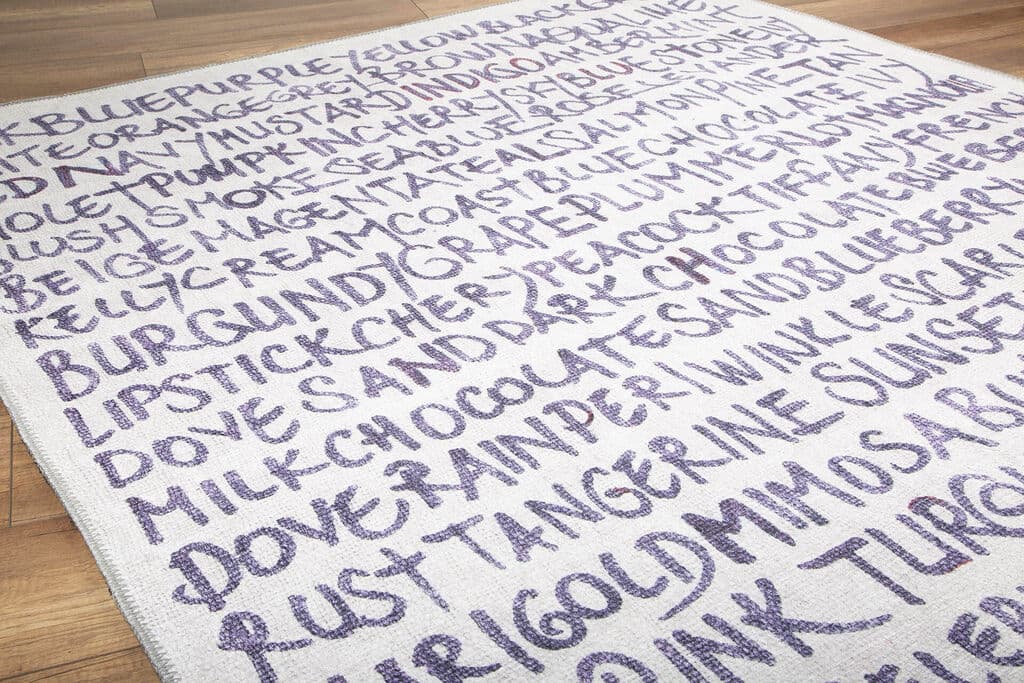 BLUE PURPLE YELLOW BLACK
ORANGE GREY BROWN AQUA LIME
NAVY MUSTARD INDIGO AMBER MINT
PUMPKIN CHERRY SKY BLUE STONE IVY
BLUSH SMOKE SEA BLUE ROSE
BEIGE MAGENTA TEAL SALMON PINE TAN
KELLY CREAM COAST BLUE CHOCOLATE IVY
BURGUNDY GRAPE PLUM MERLOT MAGNOLIA
LIPSTICK CHERRY PEACOCK TIFFANY FRENCH
DOVE SAND DARK CHOCOLATE BLUE
MILK CHOCOLATE SAND BLUEBERRY
DOVE RAIN PERIWINKLE SCARL
RUST TANGERINE SUNSET
MARIGOLD MIMOSA BU
PINK TURQ